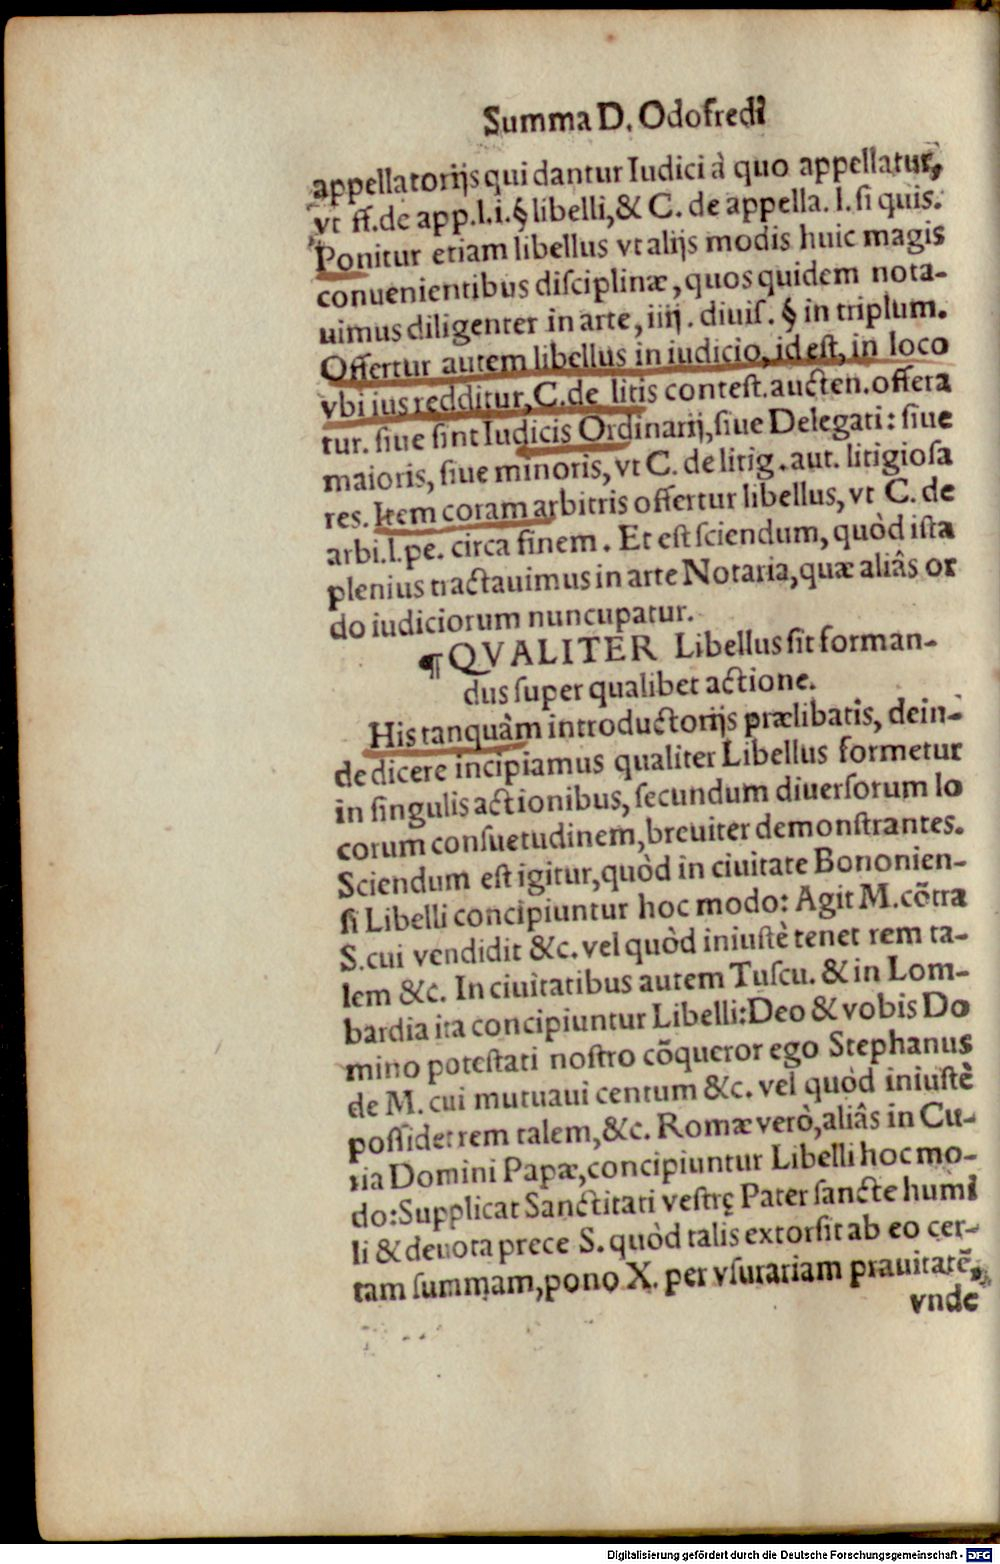 Summa D. Odofredi
appellatorijs qui dantur Iudici à quo appellatur,
vt ff. de app. l. i. § libelli, & C. de appella. l. si quis.
Ponitur etiam libellus vt alijs modis huic magis
conuenientibus disciplinæ, quos quidem nota-
uimus diligenter in arte, iiij. diuis. § in triplum.
Offertur autem libellus in iudicio, id est, in loco
vbi ius redditur, C. de litis contest. aucten. offera
tur. siue sint Iudicis Ordinarij, siue Delegati: siue
maioris, siue minoris, vt C. de litig. aut. litigiosa
res. Item coram arbitris offertur libellus, vt C. de
arbi. l. pe. circa finem. Et est sciendum, quòd ista
plenius tractauimus in arte Notaria, quæ aliâs or
do iudiciorum nuncupatur.
¶ QVALITER Libellus sit forman-
dus super qualibet actione.
His tanquàm introductorijs prælibatis, dein-
de dicere incipiamus qualiter Libellus formetur
in singulis actionibus, secundum diuersorum lo
corum consuetudinem, breuiter demonstrantes.
Sciendum est igitur, quòd in ciuitate Bononien-
si Libelli concipiuntur hoc modo: Agit M. cõtra
S. cui vendidit &c. vel quòd iniustè tenet rem ta-
lem &c. In ciuitatibus autem Tuscu. & in Lom-
bardia ita concipiuntur Libelli: Deo & vobis Do
mino potestati nostro cõqueror ego Stephanus
de M. cui mutuaui centum &c. vel quòd iniustè
possidet rem talem, &c. Romæ verò, aliâs in Cu-
ria Domini Papæ, concipiuntur Libelli hoc mo-
do: Supplicat Sanctitati vestrę Pater sancte humi
li & deuota prece S. quòd talis extorsit ab eo cer-
tam summam, pono X. per vsurariam prauitatẽ,
vnde
Digitalisierung gefördert durch die Deutsche Forschungsgemeinschaft - DFG